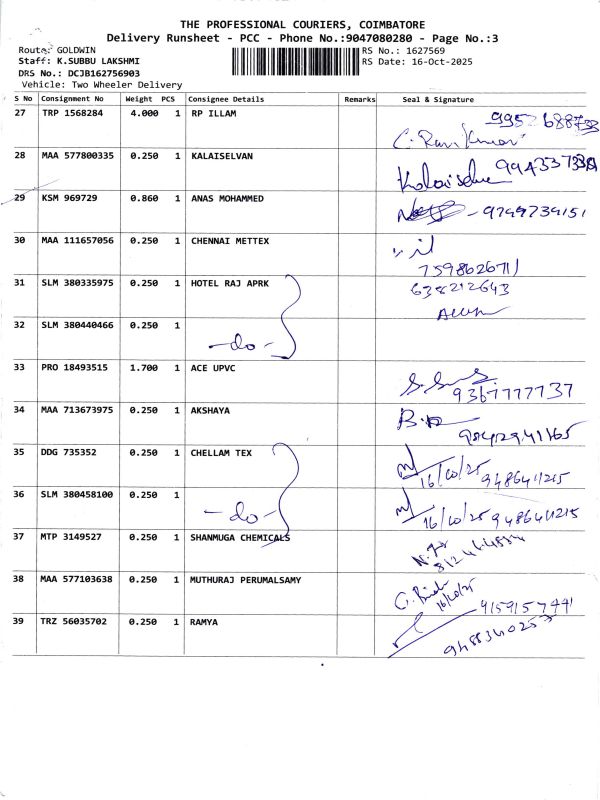 THE PROFESSIONAL COURIERS, COIMBATORE
Delivery Runsheet - PCC - Phone No.:9047080280 - Page No.:3
Route: GOLDWIN
RS No.: 1627569
Staff: K.SUBBU LAKSHMI
RS Date: 16-Oct-2025
DRS No.: DCJB162756903
Vehicle: Two Wheeler Delivery
S No Consignment No Weight PCS Consignee Details Remarks Seal & Signature
27 TRP 1568284 4.000 1 RP ILLAM
C. Ravi Kumar
28 MAA 577800335 0.250 1 KALAISELVAN
Kalaiselva
29 KSM 969729 0.860 1 ANAS MOHAMMED 9799739151
30 MAA 111657056 0.250 1 CHENNAI METTEX
7598626711
31 SLM 380335975 0.250 1 HOTEL RAJ APRK 638212643
32 SLM 380440466 0.250 1
-do-
33 PRO 18493515 1.700 1 ACE UPVC
9367777737
34 MAA 713673975 0.250 1 AKSHAYA
35 DDG 735352 0.250 1 CHELLAM TEX
16/10/25 9486411215
36 SLM 380458100 0.250 1
-do- 16/10/25 9486411215
37 MTP 3149527 0.250 1 SHANMUGA CHEMICALS
38 MAA 577103638 0.250 1 MUTHURAJ PERUMALSAMY
16/10/25
39 TRZ 56035702 0.250 1 RAMYA